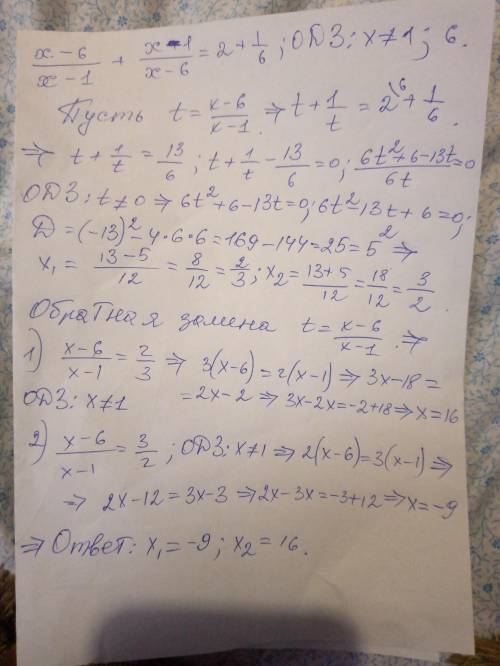 (x-6)/(x-1) + (x-1)/(x-6) = 2 + 1/6 ; ОДЗ: x≠1 ; 6.
Пусть t = (x-6)/(x-1) . ⇒ t + 1/t = 2^6 + 1/6 .
⇒ t + 1/t = 13/6 ; t + 1/t - 13/6 = 0 ; (6t²+6-13t)/6t = 0
ОДЗ: t≠0 ⇒ 6t²+6-13t=0; 6t²-13t+6=0;
Д = (-13)²-4·6·6=169-144=25=5² ⇒
x₁ = (13-5)/12 = 8/12 = 2/3 ; x₂ = (13+5)/12 = 18/12 = 3/2 .
Обратная замена t = (x-6)/(x-1) . ⇒
1) (x-6)/(x-1) = 2/3 ⇒ 3(x-6) = 2(x-1) ⇒ 3x-18 =
ОДЗ: x≠1 = 2x-2 ⇒ 3x-2x=-2+18 ⇒ x=16
2) (x-6)/(x-1) = 3/2 ; ОДЗ: x≠1 ⇒ 2(x-6)=3(x-1) ⇒
⇒ 2x-12=3x-3 ⇒ 2x-3x=-3+12 ⇒ x=-9
⇒ Ответ: x₁=-9 ; x₂=16.